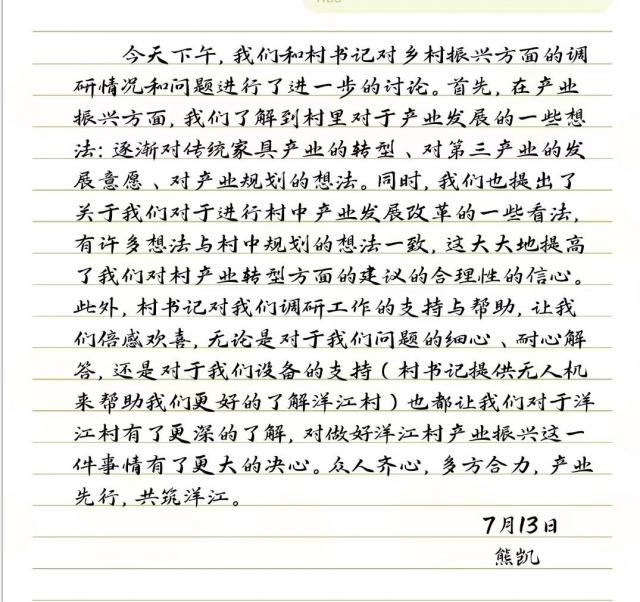 今天下午,我们和村书记对乡村振兴方面的调
研情况和问题进行了进一步的讨论。首先,在产业
振兴方面,我们了解到村里对于产业发展的一些想
法:逐渐对传统家具产业的转型、对第三产业的发
展意愿、对产业规划的想法。同时,我们也提出了
关于我们对于进行村中产业发展改革的一些看法,
有许多想法与村中规划的想法一致,这大大地提高
了我们对村产业转型方面的建议的合理性的信心。
此外,村书记对我们调研工作的支持与帮助,让我
们倍感欢喜,无论是对于我们问题的细心、耐心解
答,还是对于我们设备的支持(村书记提供无人机
来帮助我们更好的了解洋江村)也都让我们对于洋
江村有了更深的了解,对做好洋江村产业振兴这一
件事情有了更大的决心。众人齐心,多方合力,产业
先行,共筑洋江。
7月13日
熊凯